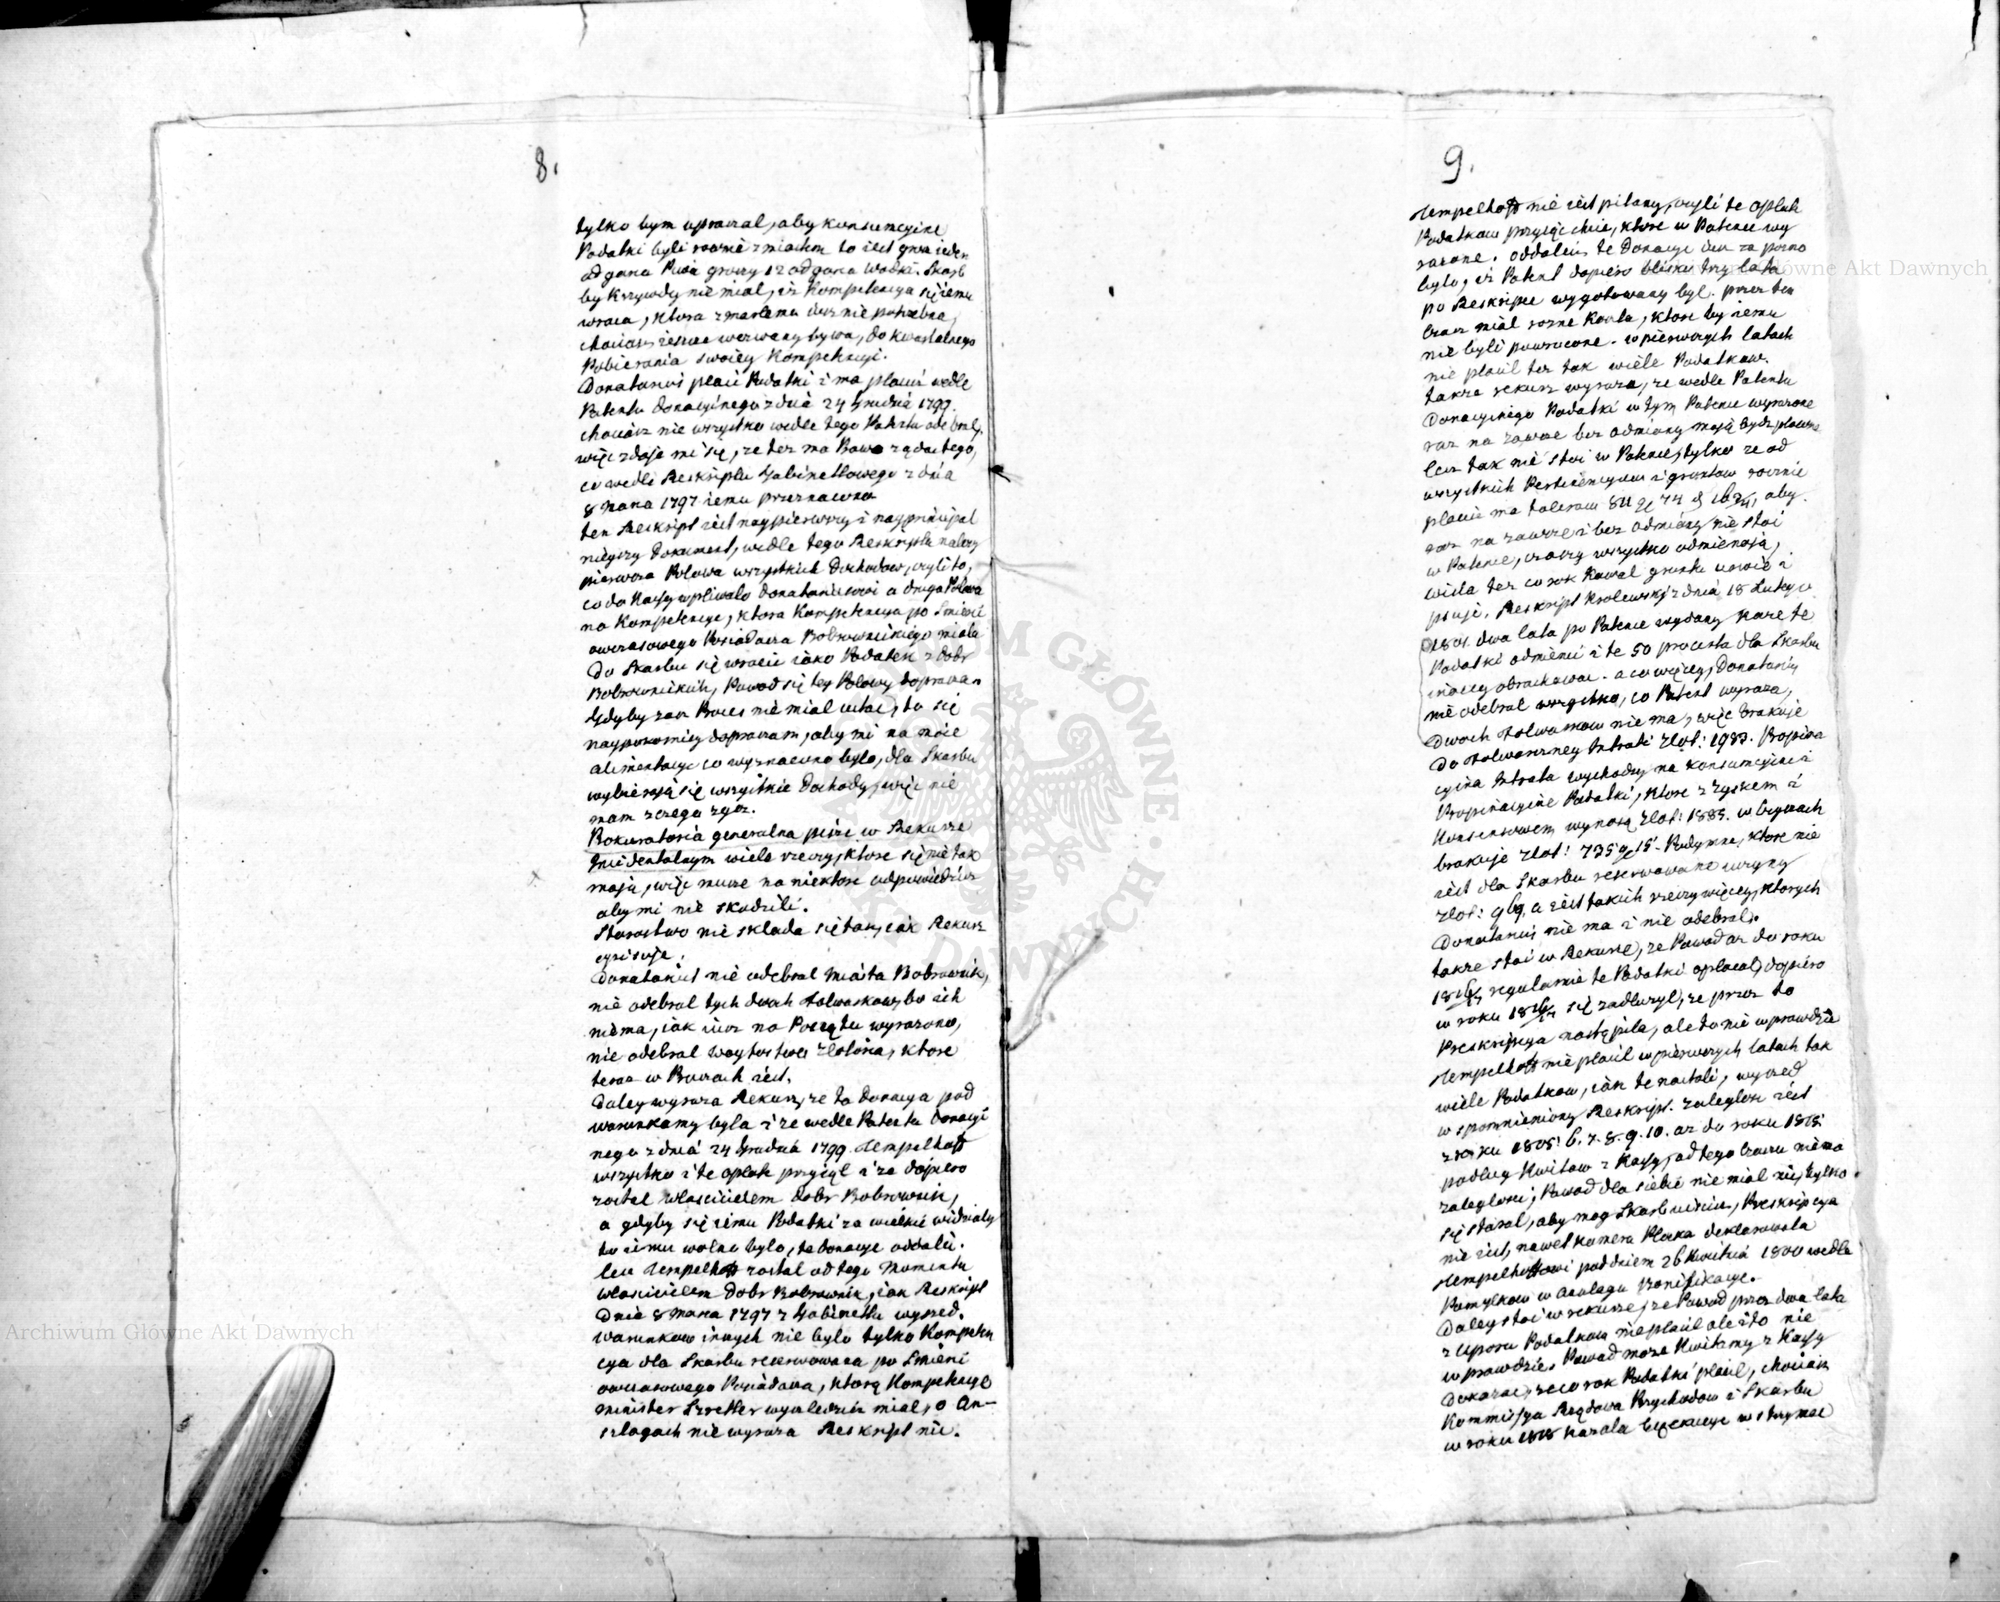 8.
tylko bym upraszal, aby konsumcyine
Podatki byli rownie z miastem to iest grosz ieden
od garca Piwa groszy 12 od garca wodki. Skarb
by krzywdy nie mial, iż Kompetencya się iemu
wraca, ktora zmarlemu iusz nie potrzebna,
chociasz ieszcze wezwany bywa, do kwartalnego
Pobierania swoiey Kompetencyi.
Donatarius placi Podatki i ma placic wedle
Patentu donacyinego z dnia 24 Grudnia 1799.
chociasz nie wszystko wedle tego Patentu odebral,
więc zdaje mi się, ze tez ma Prawo ządac tego,
co wedle Reskriptu Gabinettowego z dnia
8 Marca 1797 iemu przeznaczono
ten Reskript iest naypierwszy i nayprincipal
nieyszy Dokument, wedle tego Reskriptu nalezy
pierwsza Polowa wszystkich Dochodow, czyli to,
co do Kassy wplywalo Donatariusowi a druga Polowa
na Kompetencye, ktora Kompetencya po Smierci
owczasowego Posiadacza Bobrownickiego miala
do Skarbu się wracic iako Podatek z dobr
Bobrownickich, Powod się tey Polowy doprasza.
Gdyby zas Proces nie mial ustac, to się
naypokorniey dopraszam, aby mi na moie
alimentacye co wyznaczono bylo, dla Skarbu
wybieraią się wszystkie Dochody, więc nie
mam z czego zyc.
Prokuratoria generalna pisze w Rekursie
Incidentalnym wiele rzeczy, ktore się nie tak
maią, więc musze na niektore odpowiedziec
aby mi nie skodzili.
Starostwo nie sklada się tak, iak Rekurs
opisuje.
Donatarius nie odebral Miasta Bobrownik,
nie odebral tych dwoch Folwarkow, bo ich
nie ma, iak iusz na Początku wyrazono,
nie odebral woytostwa Zlotoria, ktore
teraz w Prusach iest.
Daley wyraza Rekurs, ze ta donacya pod
warunkamy byla i ze wedle Patentu Donacyi
nego z dnia 24 Grudnia 1799 Hempelhoff
wszystko i te oplate przyiąl i ze dopiero
zostal wlascicielem dobr Bobrownik,
a gdyby się iemu Podatki za wielkie widzialy
to iemu wolno bylo, te donacye oddalic.
lecz Hempelhoff zostal od tego Momentu
wlascicielem dobr Bobrownik, iak Reskript
Dnia 8 Marca 1797 z Gabinettu wyszed.
warunkow innych nie bylo tylko Kompeten
cya dla Skarbu reserwowana po Smierci
owczasowego Posiadacza, ktorą Kompetencye
Minister Schretter wysledzic mial, o An-
szlagach nie wyraza Reskript nic.
9.
Hempelhoff nie iest pitany, czyli te oplate
Podatkow przyiąc chce, ktore w Patencie wy
razone. oddalenie te Donacye iusz za pozno
bylo, iż Patent dopiero blisko trzy lata
po Reskripcie wygotowany byl. przez ten
Czas mial rozne Koszta, ktore by iemu
nie byli powrocone. w pierwszych latach
nie placil tez tak wiele Podatkow.
takze rekurs wyraza, ze wedle Patentu
Donacyinego Podatki w tym Patencie wyrazone
raz na zawsze bez odmiany maią bydz placone
lecz tak nie stoi w Patencie, tylko ze od
wszystkich Pertinencyow i gruntow rocznie
placic ma talerow 811 gg 74, aby
raz na zawsze i bez odmiany nie stoi
w Patencie, czaszy wszystko odmieniaią,
wisla tez co rok Kawal gruntu urwie i
psuje. Reskript Krolewsky z dnia 18 Lutego
1801 dwa lata po Patencie wydany kaze te
Podatki odmienic i te 50 procentu dla Skarbu
inaczy obrachowac. a co więcey, Donatarius
nie odebral wszystko, co Patent wyraza,
Dwoch Folwarkow nie ma, więc brakuje
Do Folwarczney Intraty Zlot: 1987. Propina
cyina Intrata wychodzy na konsumcyine i
Propinacyine Podatki, ktore z Zyskem i
Konsensowem wynoszą Zlot: 1885. w Czynszach
brakuje Zlot: 735 gr 15. Podymne, ktore nie
iest dla Skarbu reserwowano czyny
Zlot: 969, a iest takich rzeczy więcey, ktorych
Donatarius nie ma i nie odebral.
takze stoi w Rekursie, ze Powod az do roku
regularnie te Podatki oplacal, dopiero
w roku się zadluzyl, ze przez to
Preskripcya nastąpila, ale to nie w prawdzie
Hempelhoff nie placil w pierwszych latach tak
wiele Podatkow, iak te nastali, wyszed
wspomnieniony Reskript. zaleglosc iest
z roku 1805! 6. 7. 8. 9. 10. az do roku 1815
podlug Kwitow z Kassy, od tego Czasu nie ma
zaleglosci, Powod dla siebie nie mial nic, tylko
się staral, aby mog Skarb uiscic, Preskripcya
nie iest, nawet Kamera Plocka deklarowala
Hempelhoffowi pod dniem 26 Kwietnia 1800 wedle
Pomylkow w Anslagu Bonifikacye.
Daley stoi w rekursie, ze Powod przez dwa lata
z uporu Podatkow nie placil ale i to nie
w prawdzie. Powod moze Kwitamy z Kassy
Dokazac, ze co rok Podatki placil, chociasz
Kommissya Rządowa Przychodow i Skarbu
w roku 1818 kazala Exekucye wstrzymac
Archiwum Główne Akt Dawnych
Archiwum Główne Akt Dawnych
ARCHIWUM GŁÓWNE AKT DAWNYCH